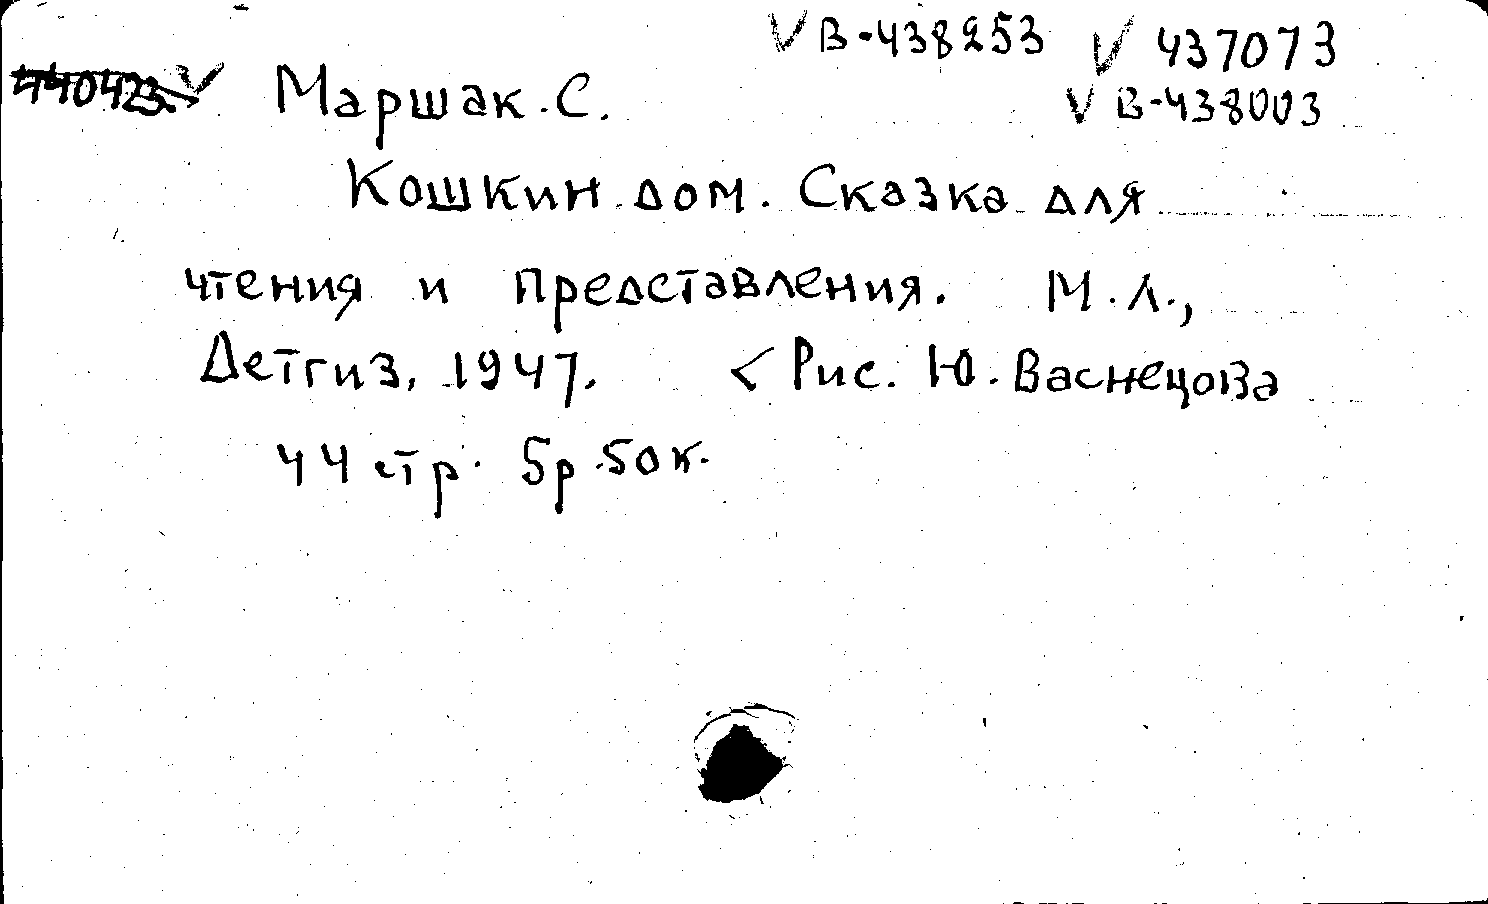 V В-438253 V 437073
440423 V Маршак. С. V В-438003
Кошкин дом. Сказка для
чтения и представления. М.Л.,
Детгиз, 1947. < Рис. Ю. Васнецова
44 стр. 5р.50к.